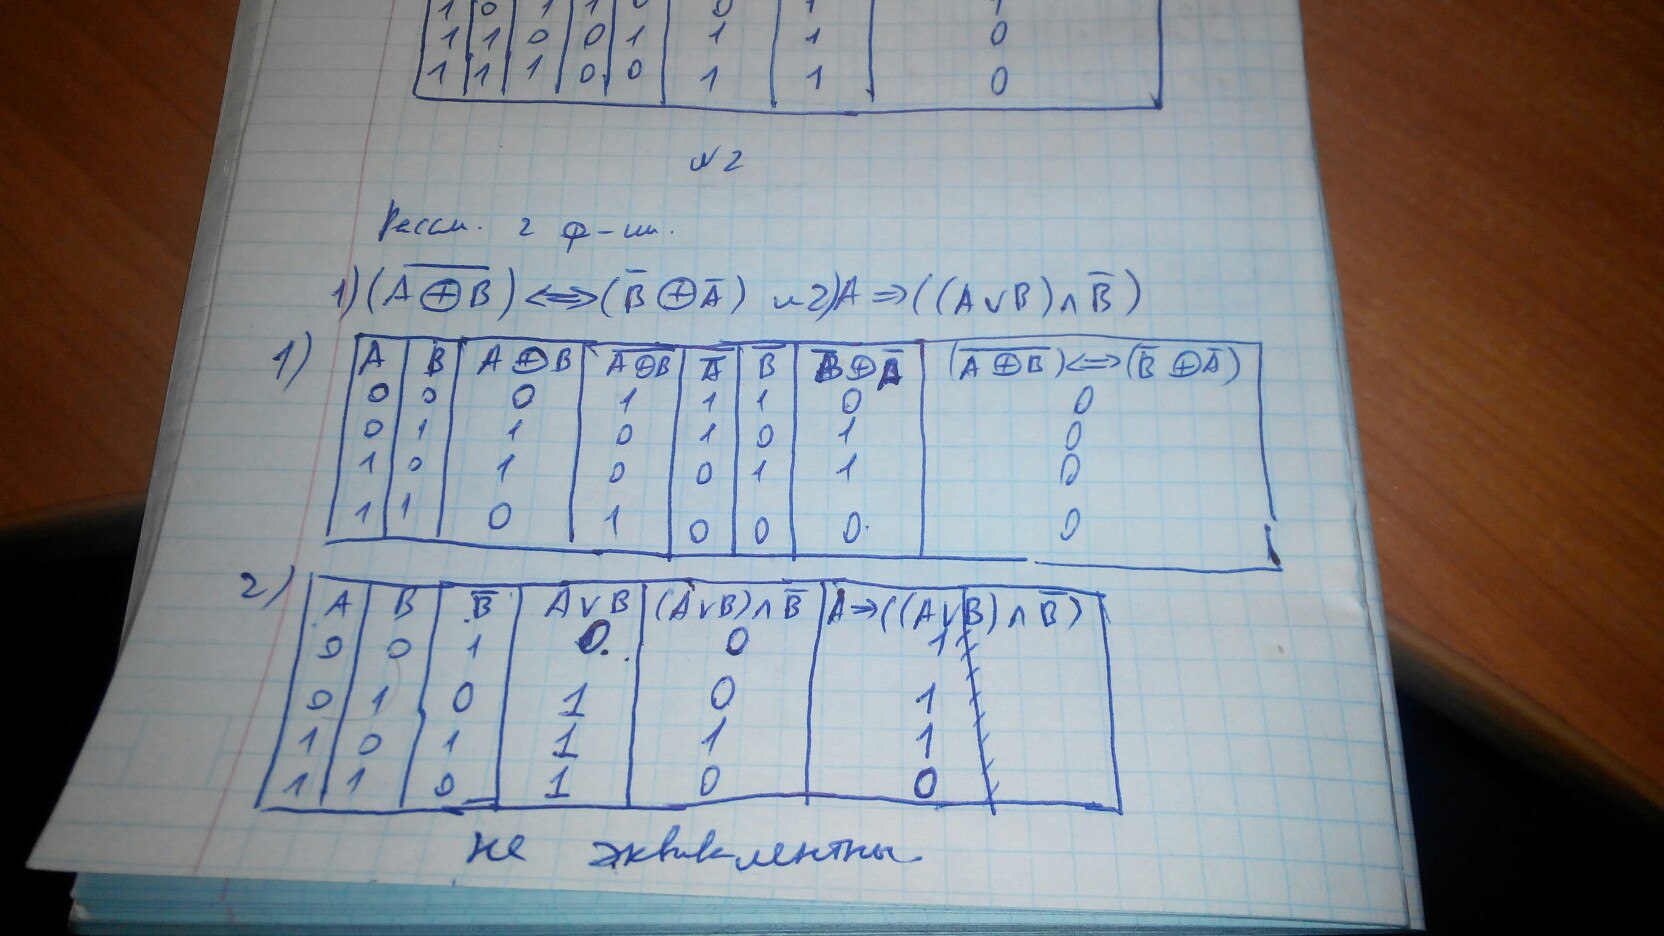 1 0 1 1 0 0 1 1
1 1 0 0 1 1 1 0
1 1 1 0 0 1 1 0
№2
Рассм. 2 ф-ии.
1) (A̅ ̅⊕̅ ̅B̅) ⟺ (B̅ ⊕ A̅) и 2) A ⇒ ((A ∨ B) ∧ B̅)
1) A B A ⊕ B A̅ ̅⊕̅ ̅B̅ A̅ B̅ B̅ ⊕ A̅ (A̅ ̅⊕̅ ̅B̅) ⟺ (B̅ ⊕ A̅)
0 0 0 1 1 1 0 0
0 1 1 0 1 0 1 0
1 0 1 0 0 1 1 0
1 1 0 1 0 0 0 0
2) A B B̅ A ∨ B (A ∨ B) ∧ B̅ A ⇒ ((A ∨ B) ∧ B̅)
0 0 1 0 0 1
0 1 0 1 0 1
1 0 1 1 1 1
1 1 0 1 0 0
не эквивалентны